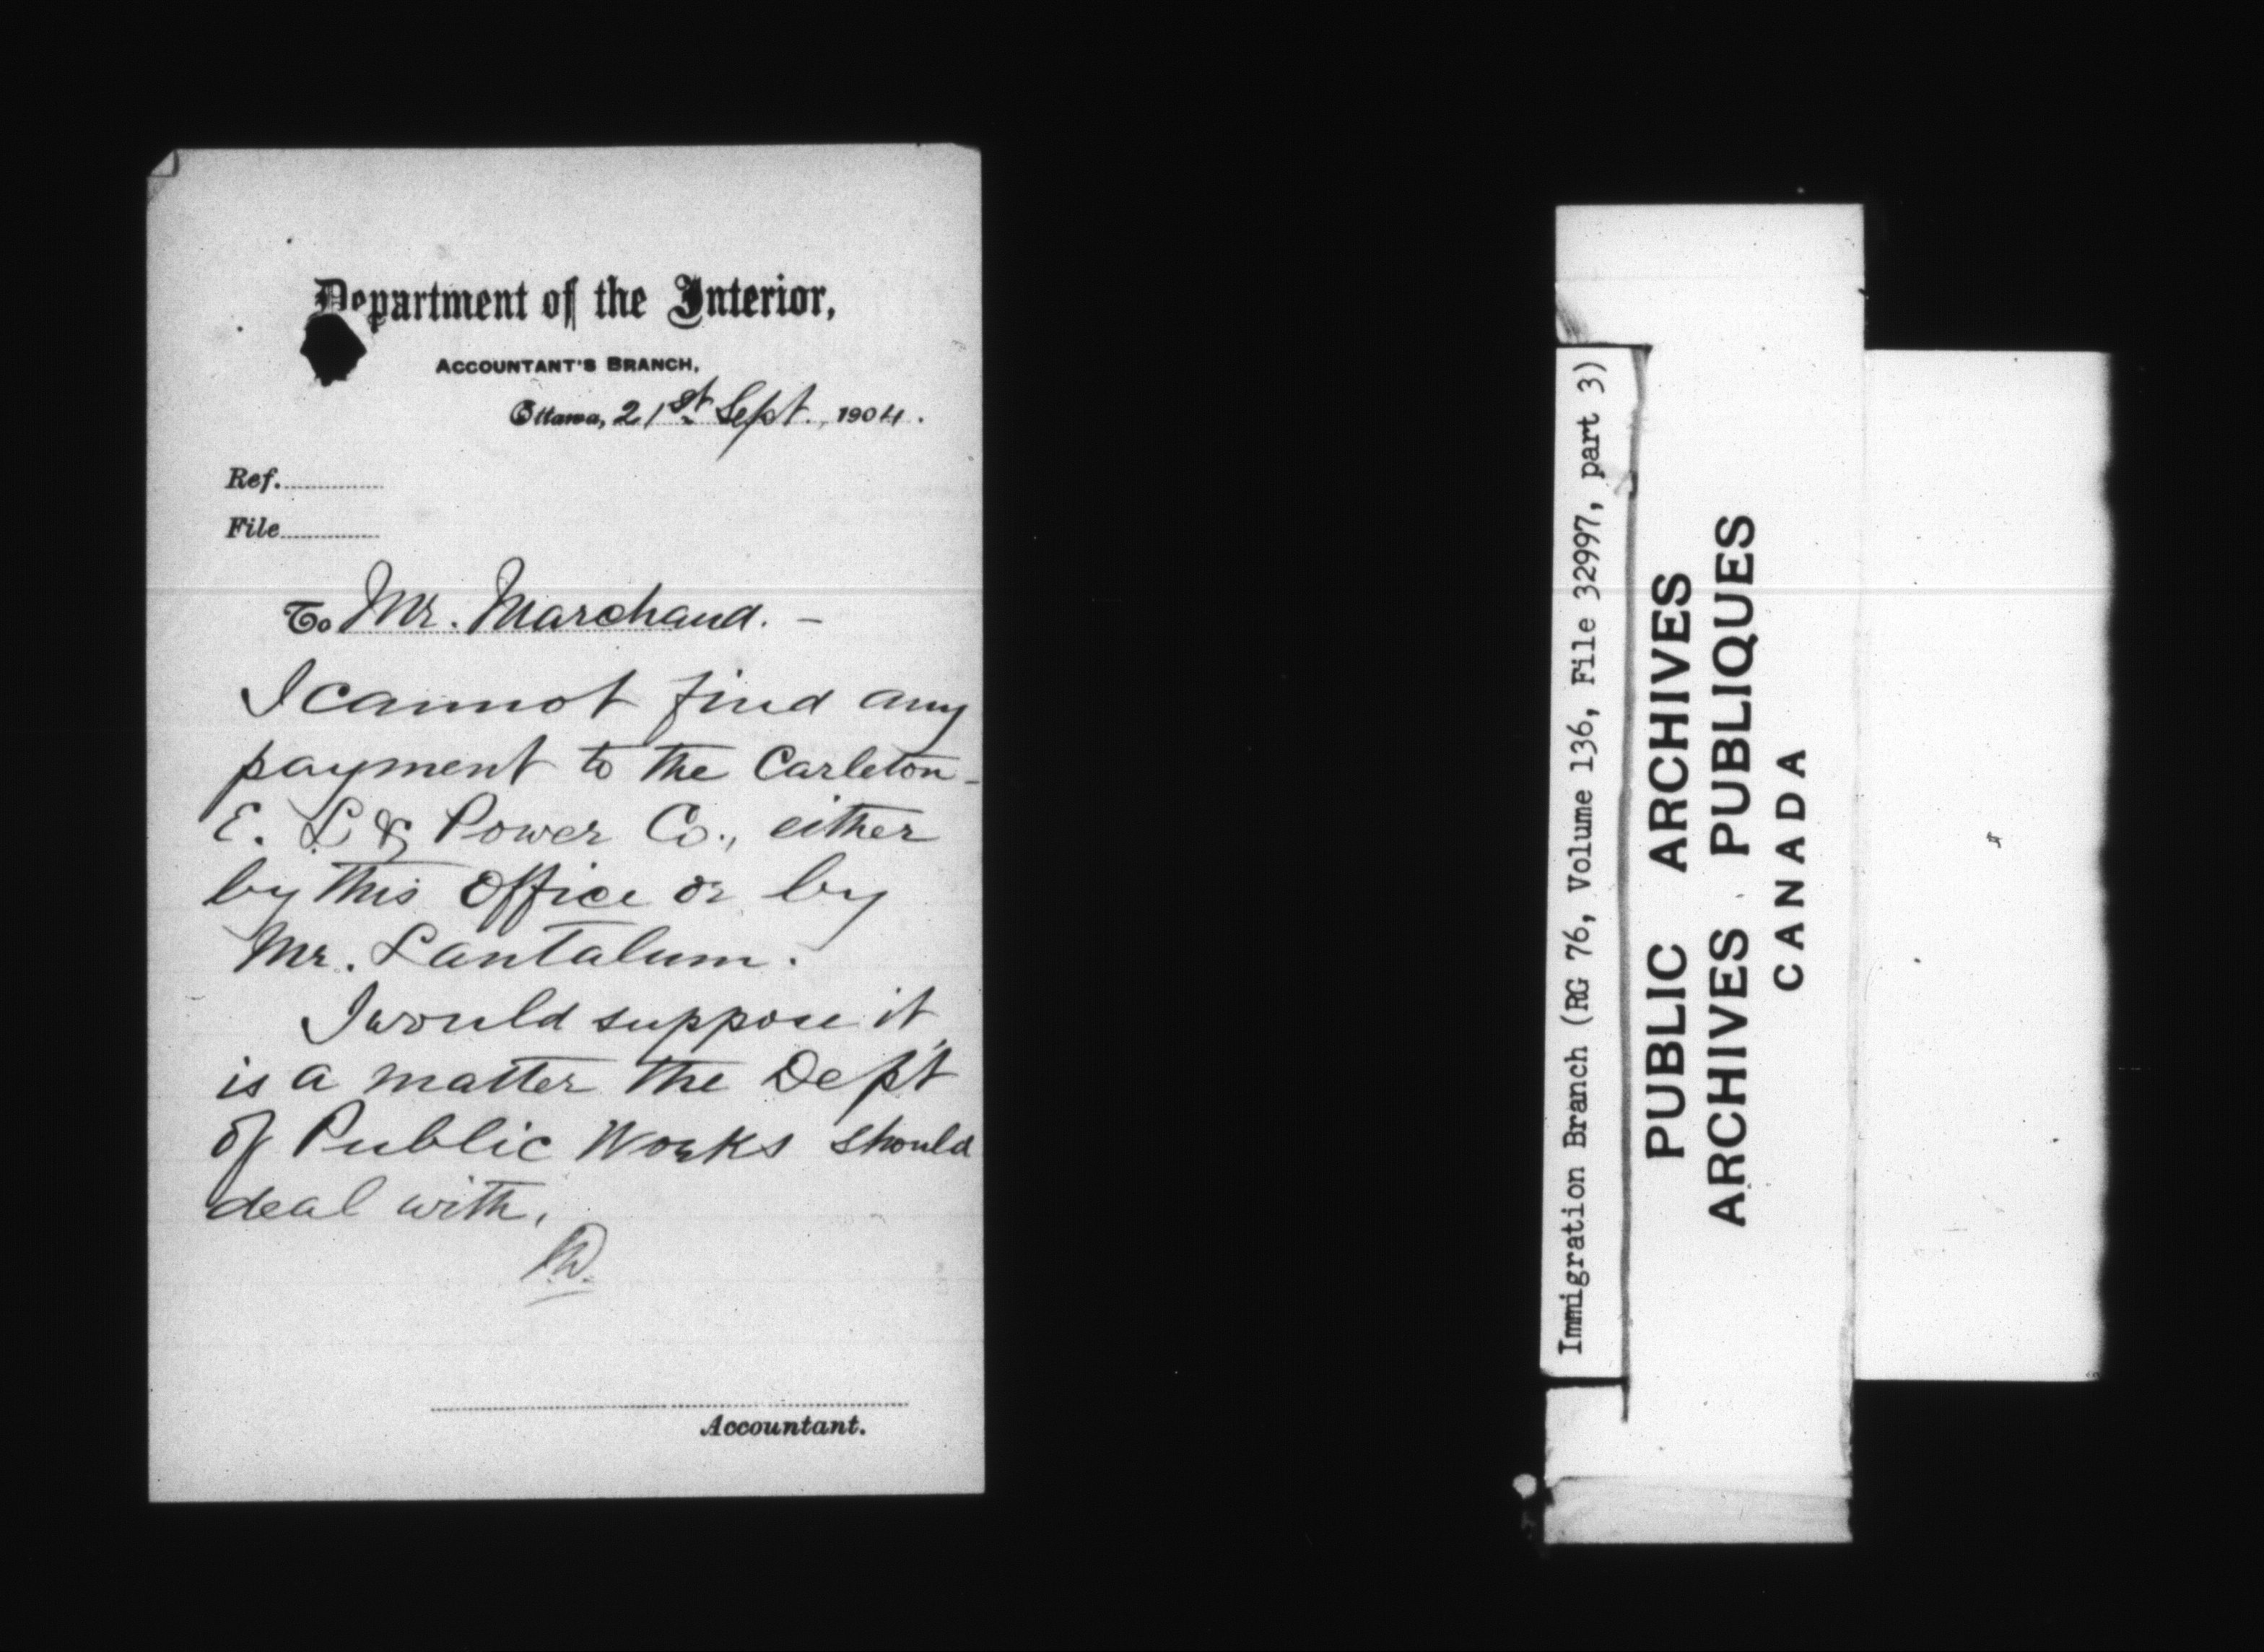 Department of the Interior,
ACCOUNTANT'S BRANCH,
Ottawa, 21st Sept. 1904.
Ref.
File
To Mr. Marchand. –
I cannot find any
payment to the Carleton-
E. L & Power Co., either
by this Office or by
Mr. Lantalum.
I would suppose it
is a matter the Dep't
of Public Works should
deal with.
Accountant.
Immigration Branch (RG 76, Volume 136, File 32997, part 3)
PUBLIC ARCHIVES
ARCHIVES PUBLIQUES
CANADA